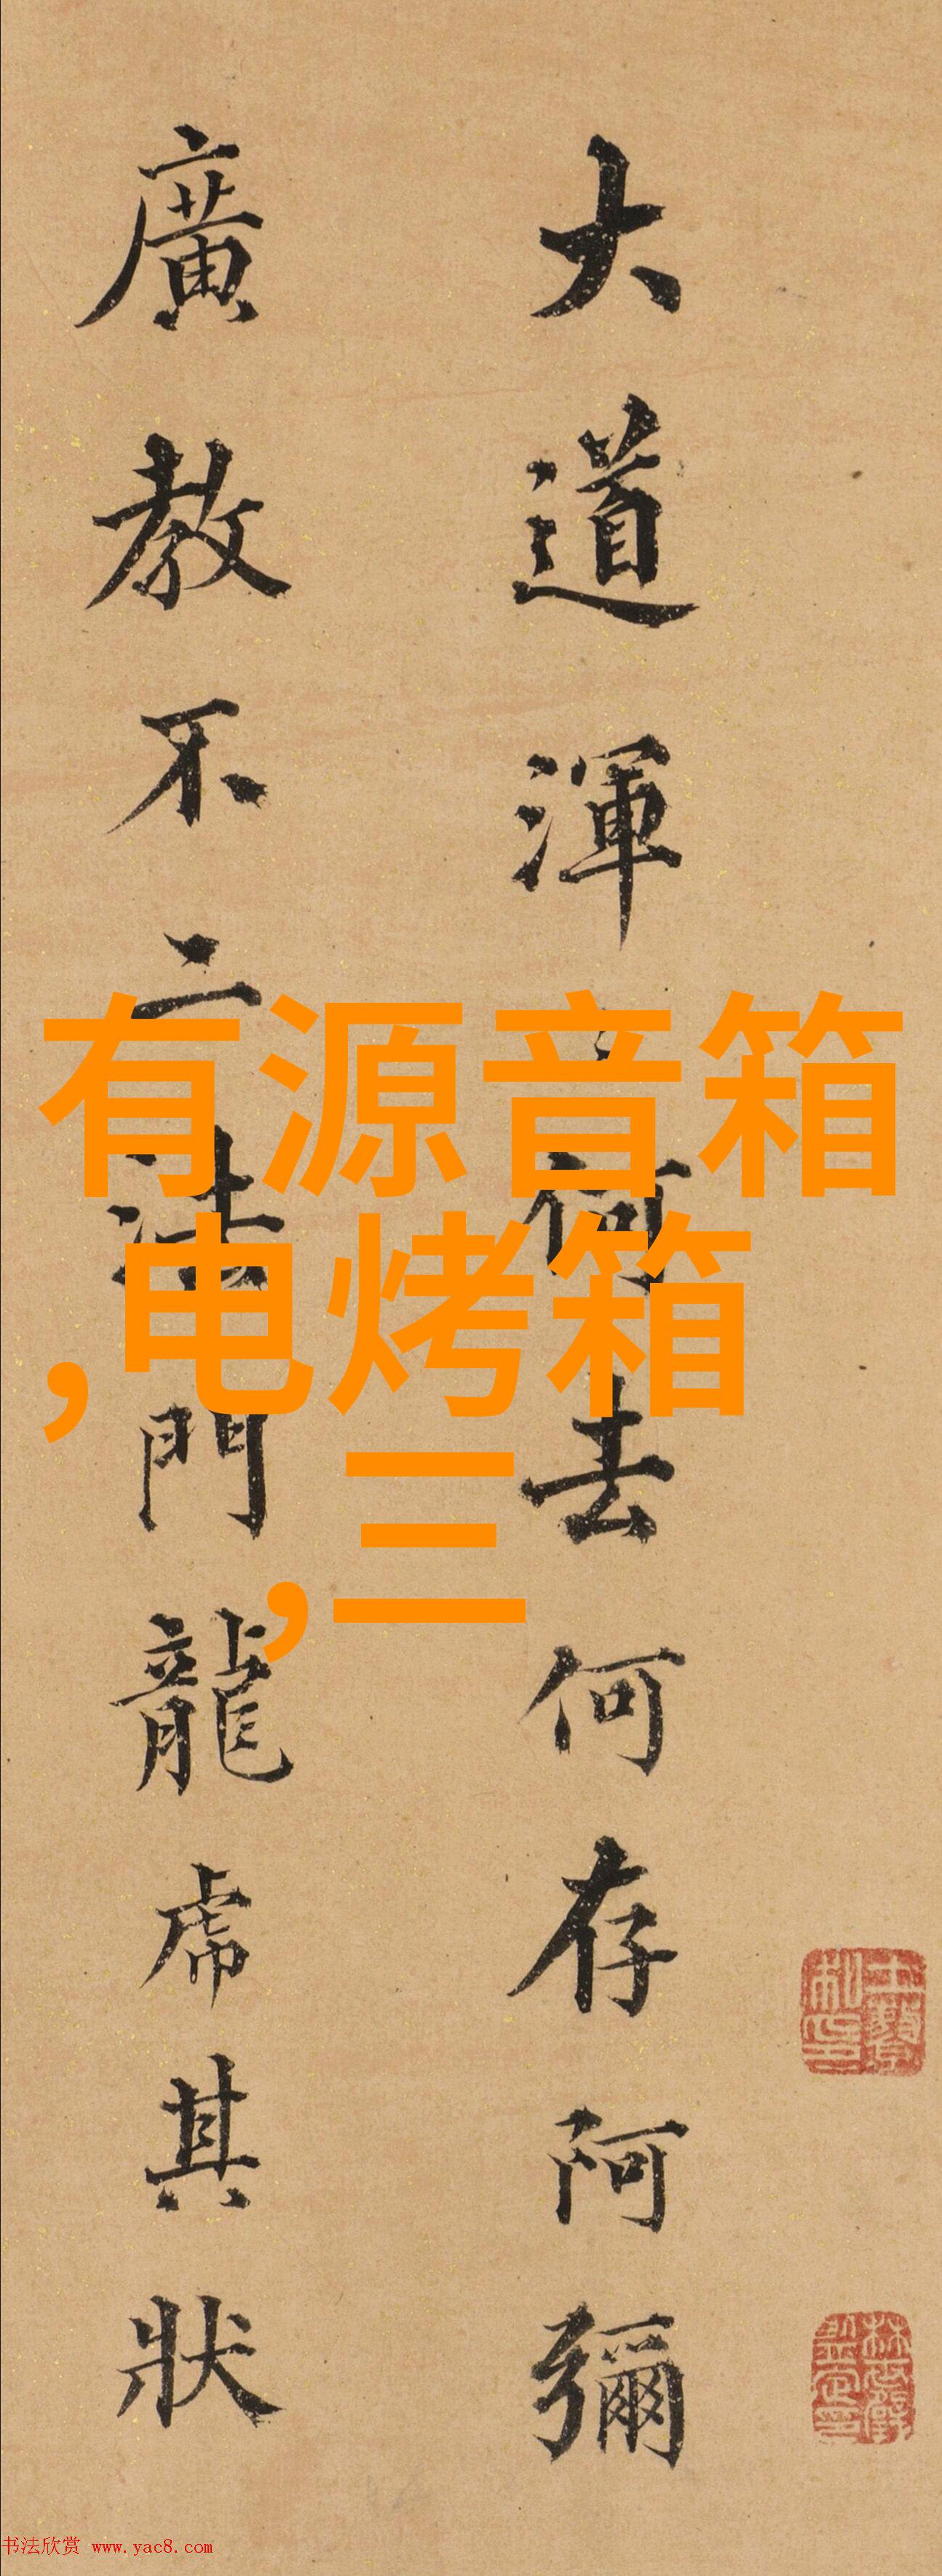 大道渾何去何存阿彌
廣教不二法門龍虎其狀
有源音箱
,电烤箱
,三
书法欣赏 www.yac8.com